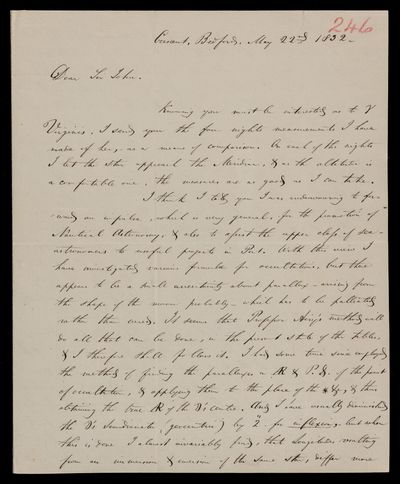 246
Crescent, Bedford, May 22nd 1832 -
Dear Sir John.
Knowing you must be interested as to γ
Virginis, I send you the four nights measurements I have
made of her, as a means of comparison. On each of the nights
I let the star approach the Meridian, & as the altitude is
a comfortable one, the measures are as good as I can take.
I think I told you I am endeavouring to for-
ward on impulse, which is very general, for the promotion of
Nautical Astronomy, & also to assist the upper class of sea-
astronomers to useful projects in Port. With this view I
have investigated various formulæ for occultations, but there
appears to be a small uncertainty about parallax - arising from
the shape of the moon probably - which has to be palliated
rather than cured. It seems that Professor Airy's method will
do all that can be done, in the present state of the tables,
& I therefore shall follow it. I had some time since employed
the method of finding the parallaxes in AR & P.D. of the point
of occultation, & applying them to the place of the *, & thus
obtaining the true AR of the ☽'s centre. And I have usually diminished
the ☽'s Semidiameter (geocentric) by 2" for inflexion; but when
this is done I almost invariably find, that Longitudes resulting
from an immersion & emersion of the same star, differ more